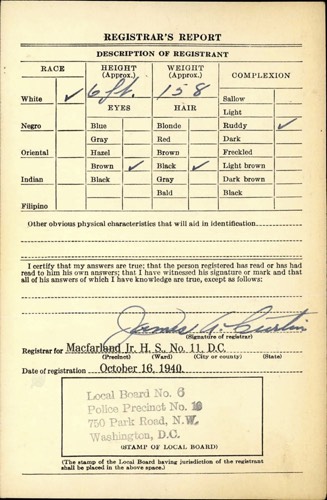 REGISTRAR'S REPORT
DESCRIPTION OF REGISTRANT
RACE HEIGHT (Approx.) WEIGHT (Approx.) COMPLEXION
White ✓ 6 ft. 158 Sallow
EYES HAIR Light
Negro Blue Blonde Ruddy ✓
Gray Red Dark
Oriental Hazel Brown Freckled
Brown ✓ Black ✓ Light brown
Indian Black Gray Dark brown
Bald Black
Filipino
Other obvious physical characteristics that will aid in identification
I certify that my answers are true; that the person registered has read or has had
read to him his own answers; that I have witnessed his signature or mark and that
all of his answers of which I have knowledge are true, except as follows:
James A. Curtin
(Signature of registrar)
Registrar for Macfarland Jr. H. S. No. 11, D.C.
(Precinct) (Ward) (City or county) (State)
Date of registration October 16, 1940
Local Board No. 6
Police Precinct No. 10
750 Park Road, N.W.
Washington, D.C.
(STAMP OF LOCAL BOARD)
(The stamp of the Local Board having jurisdiction of the registrant
shall be placed in the above space.)